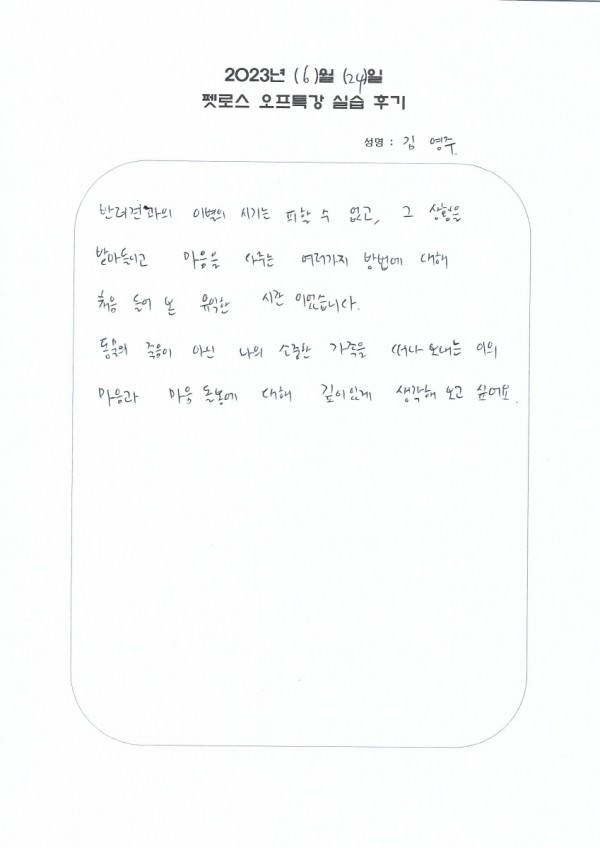 2023년 (6)월 (24)일
펫로스 오프특강 실습 후기
성명 : 김 영주
반려견과의 이별의 시기는 피할 수 없고, 그 상황을
받아들이고 마음을 나누는 여러가지 방법에 대해
처음 들어 본 유익한 시간 이었습니다.
동물의 죽음이 아닌 나의 소중한 가족을 떠나 보내는 이의
마음과 마음 돌봄에 대해 깊이있게 생각해 보고 싶어요.